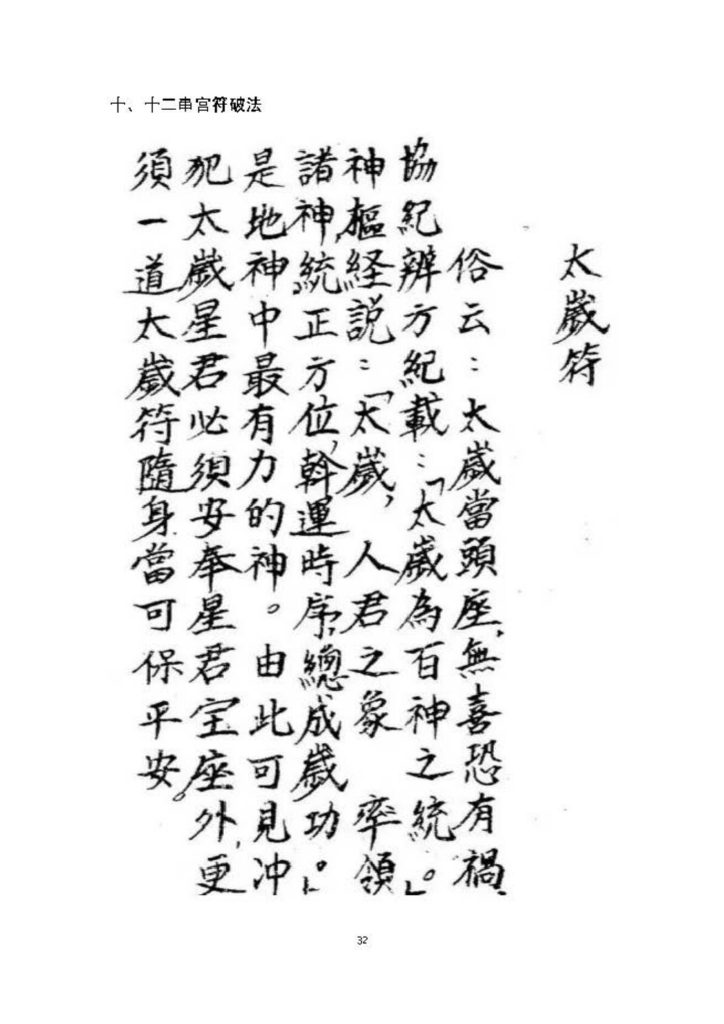 十、十二串宮符破法
太歲符
俗云：太歲當頭座，無喜恐有禍，
協紀辨方紀載：「太歲為百神之統。」
神樞経説：「太歲，人君之象 率領
諸神，統正方位，斡運時序，總成歲功。」
是地神中最有力的神。由此可見冲
犯太歲星君必須安奉星君宝座外，更
須一道太歲符隨身當可保平安。
32